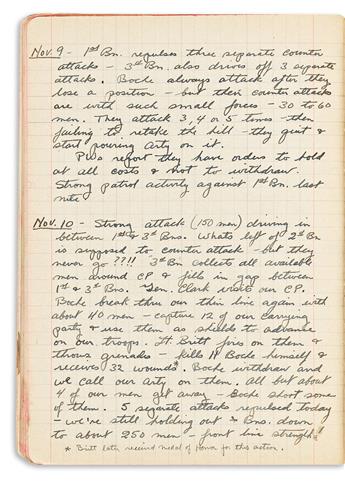 Nov. 9 - 1st Bn. repulses three separate counter
attacks - 3rd Bn. also drives off 3 separate
attacks. Boche always attack after they
lose a position - but their counter attacks
are with such small forces - 30 to 60
men. They attack 3, 4 or 5 times - then
failing to retake the hill - they quit &
start pouring arty on it.
PWs report they have orders to hold
at all costs & not to withdraw.
Strong patrol activity against 1st Bn. last
nite
Nov. 10 - Strong attack (150 men) driving in
between 1st & 3rd Bns. Whats left of 2nd Bn
is assigned to counter attack - but they
never go ??!! 3rd Bn Collects all available
men around CP & fills in gap between
1st & 3rd Bns. Gen. Clark visits our CP.
Boche break thru our thin line again with
about 40 men - capture 12 of our carrying
party & use them as shields to advance
on our troops. Lt. Britt fires on them &
throws grenades - kills 11 Boche himself &
receives 32 wounds* Boche withdraw and
we call our arty on them. All but about
4 of our men get away - Boche shoot some
of them. 5 separate attacks repulsed today
- we're still holding out & Bns. down
to about 250 men - front line strength
* Britt later received medal of honor for this action.